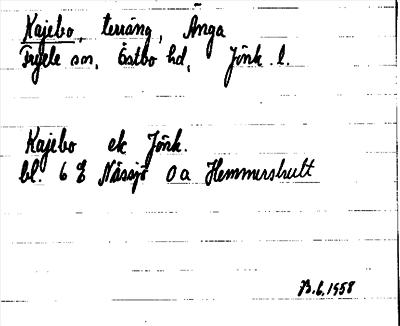 Kajebo, terräng, Anga
Fryele sn, Östbo hd, Jönk. l.
Kajebo ek Jönk.
bl. 6 g Nässjö Oa Hemmershult
B.G. 1958